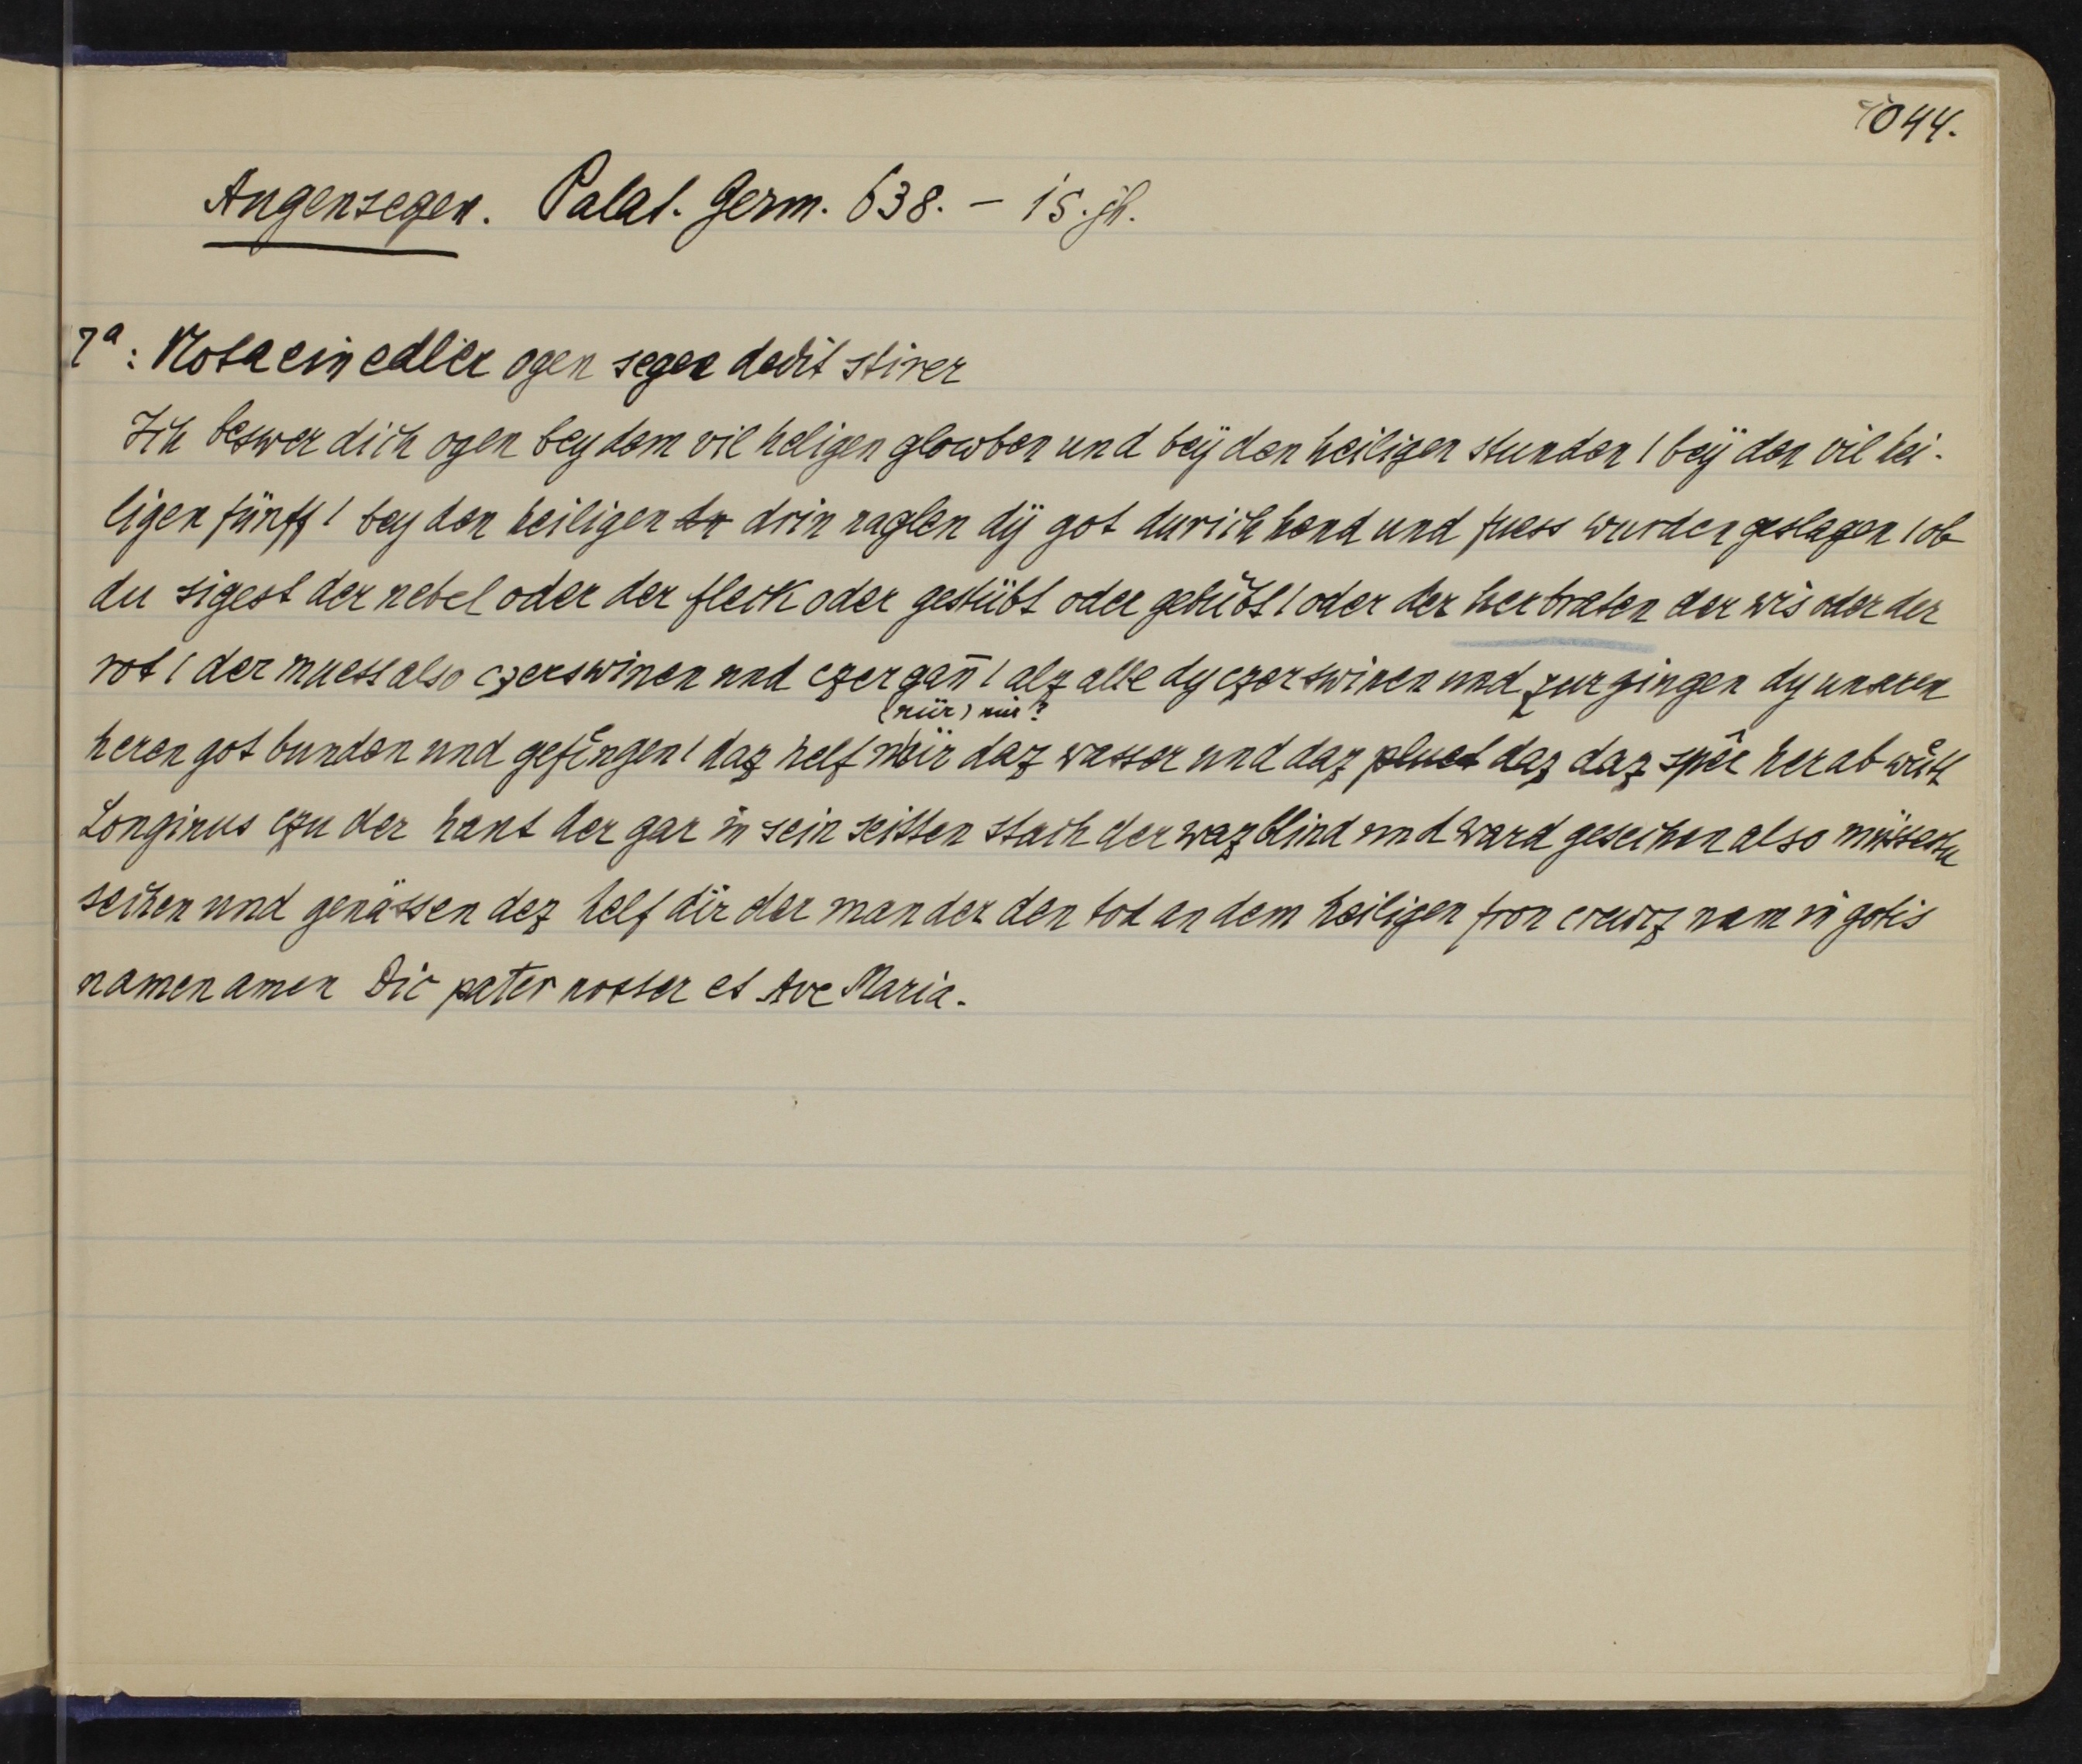 1044.
Augensegen. Palat. Germ. 638. – 15. jh.
7ª: Nota ein edler ogen segen dedit stirer
Ich beswer dich ogen bey dem vil heligen glowben und beÿ den heiligen stunden / beÿ den vil hei-
ligen fünff / bey den heiligen drin naglen dÿ got durich hend und fuess wurden geslagen / ob
du sigest der nebel oder der fleck oder gestübt oder getrübt / oder der herbraten der wis oder der
rot / der muess also czerswinen und czergan̄ / alz alle dy czerswinen und zurgingen dy unseren
(nür) mir?
heren got bunden und gefingen / daz helf mir daz wasser und daz pluet daz daz sper her ab wůtt
Longinus czu der hant der gar in sein seitten stach der waz blind und ward gesechen also müssestu
sechen und genässen dez helf dir der man der den tod an dem heiligen fron creucz nam in gotis
namen amen Dic pater noster et Ave Maria.